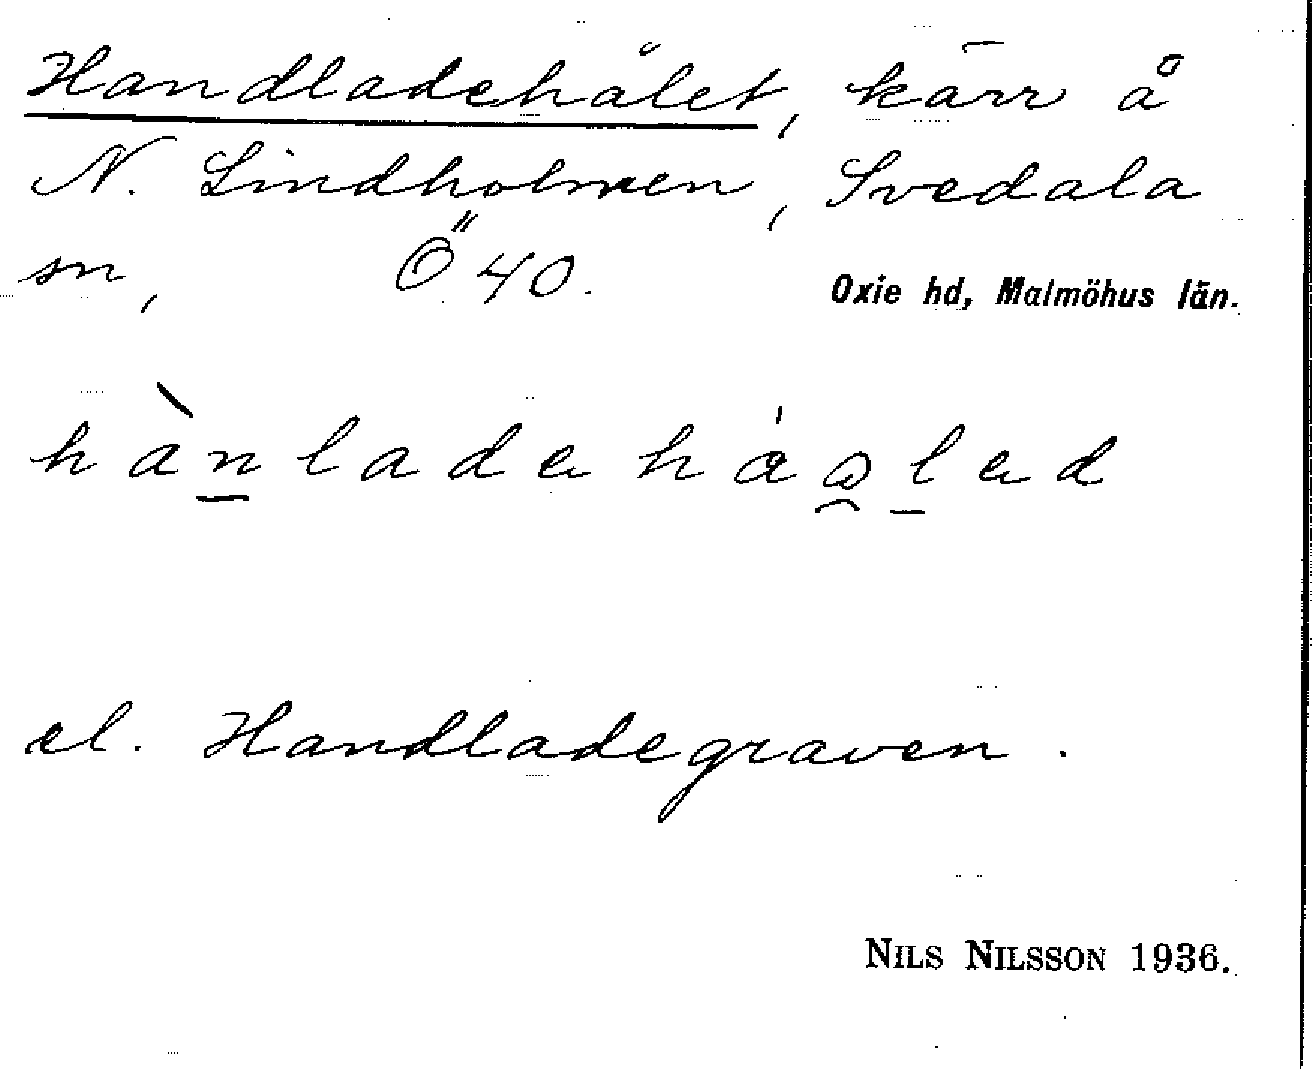 Handladehålet, kärr å
N. Lindholmen, Svedala
sn, Ö 40. Oxie hd, Malmöhus län.
el. Handladegraven.
NILS NILSSON 1936.